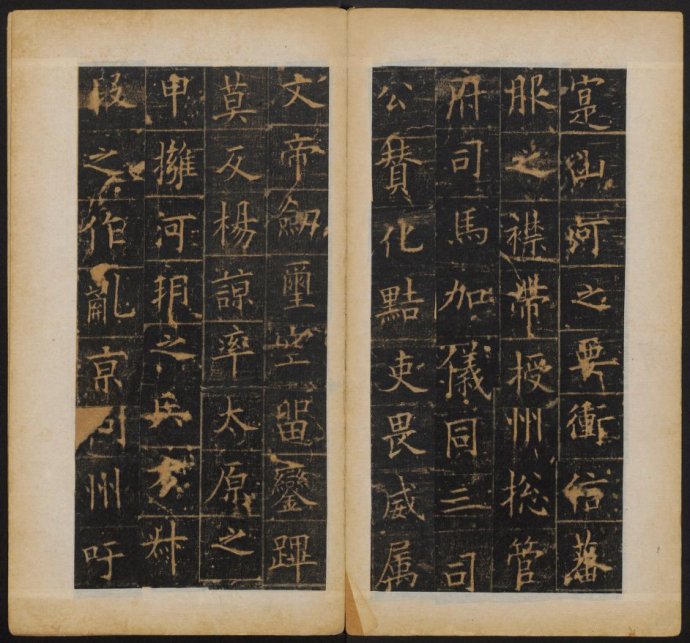 寔山河之要衝信蕃
服之襟帶授州揔管
府司馬加儀同三司
公賛化黠吏畏威属
文帝劒璽空留鑾蹕
莫反楊諒率太原之
甲擁河朔之兵方叔
段之作亂京同州吁